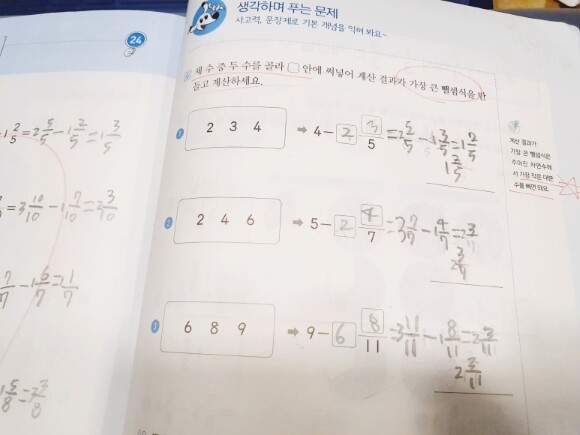 생각하며 푸는 문제
사고력, 문장제로 기본 개념을 익혀 봐요~
24
세 수 중 두 수를 골라 □ 안에 써넣어 계산 결과가 가장 큰 뺄셈식을 만
들고 계산하세요.
1 2 3 4 ➡ 4 - 2 3/5 = 2 5/5 - 1 3/5 = 1 2/5
1 2/5
계산 결과가
가장 큰 뺄셈식은
주어진 자연수에
서 가장 작은 대분
수를 빼면 돼요.
2 2 4 6 ➡ 5 - 2 4/7 = 3 7/7 - 1 4/7 = 2 3/11
2 3/7
3 6 8 9 ➡ 9 - 6 8/11 = 3 11/11 - 1 8/11 = 2 3/11
2 3/11
1 2/5 = 2 5/5 - 1 2/5 = 1 3/5
= 3 10/10 - 1 7/10 = 2 3/10
7/7 - 1 6/7 = 2 1/7
1 5/8 = 2 3/8